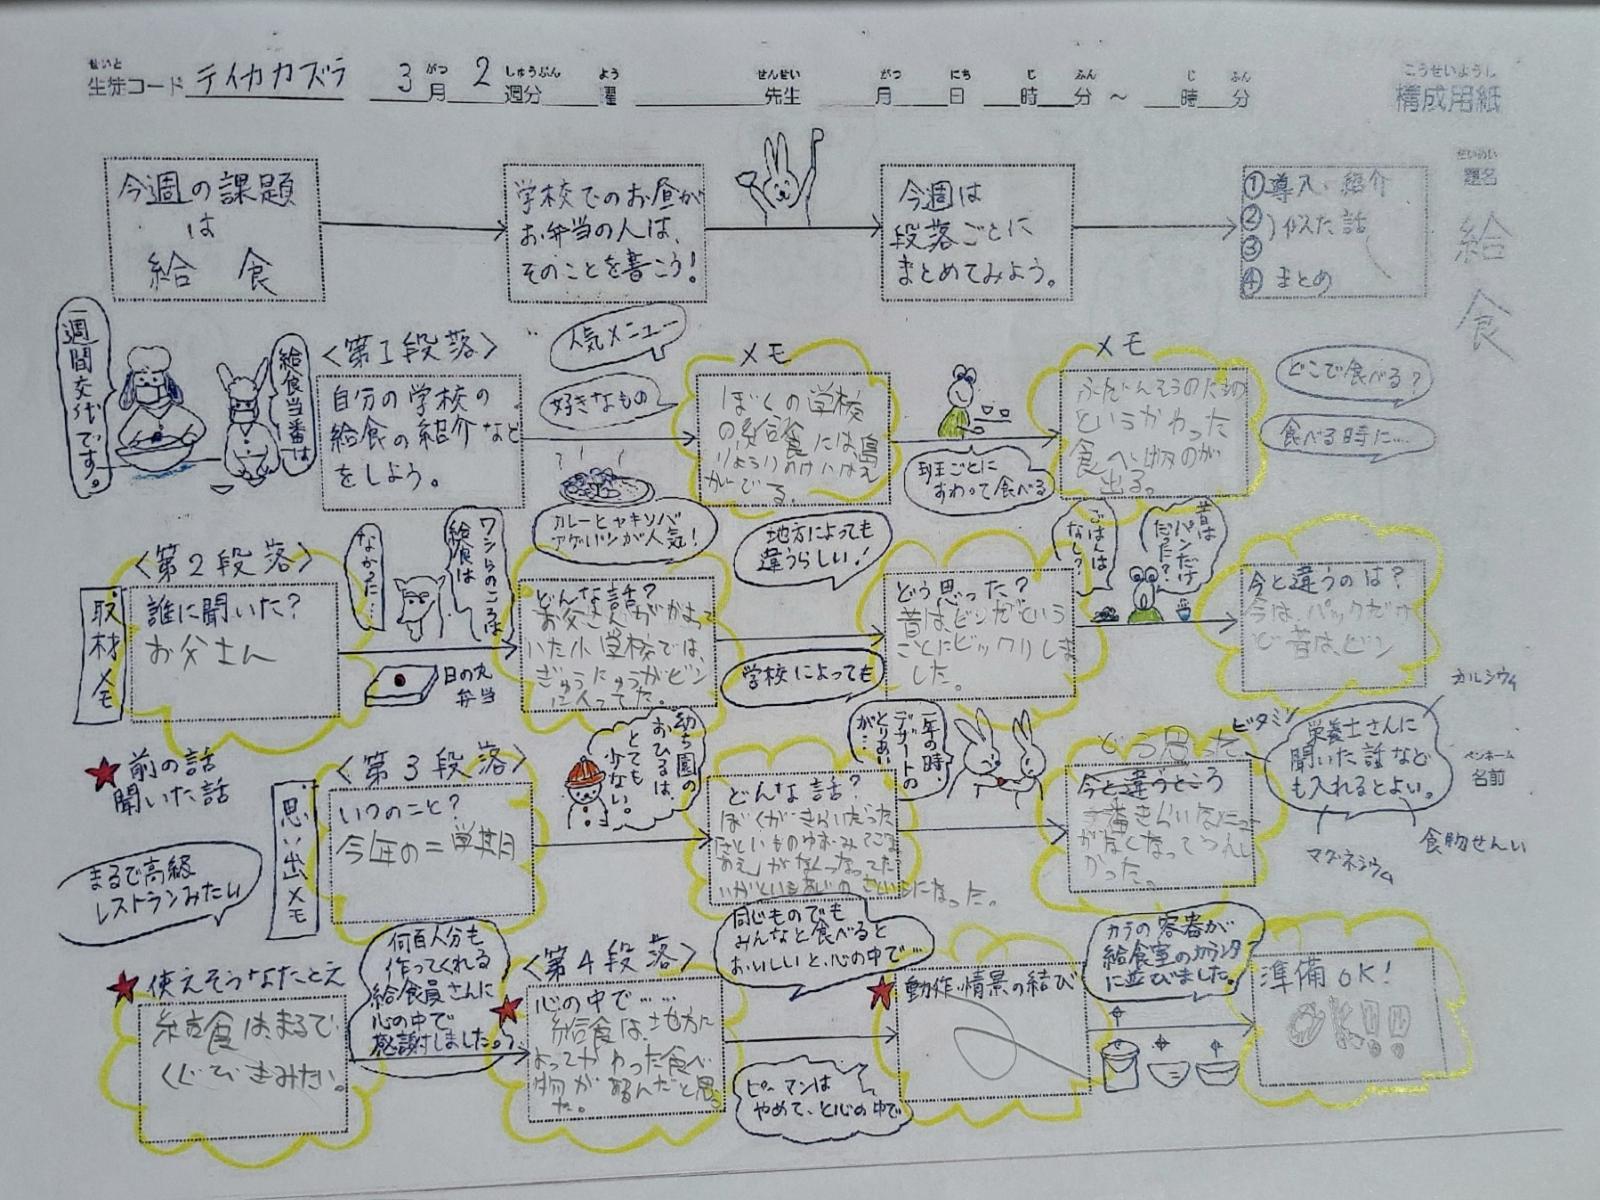 せいと がつ しゅうぶん よう せんせい がつ にち じ ふん じ ふん こうせいようし
生徒コード テイカカズラ 3月 2週分 曜 先生 月 日 時 分 ~ 時 分 構成用紙
だいめい
題名
給食
今週の課題
は
給 食
学校でのお昼が
お弁当の人は、
そのことを書こう!
今週は
段落ごとに
まとめてみよう。
①導入・紹介
②
③ 似た話
④まとめ
一週間交代です。
給食当番は
〈第1段落〉
自分の学校の
給食の紹介など
をしよう。
人気メニュー
好きなもの
カレーとヤキソバ
アゲパンが人気!
メモ
ぼくの学校
の給食には、鳥
りょうり
でる。
班ごとに
すわって食べる
メモ
というかわった
食べ物が
出る。
どこで食べる?
食べる時に…
取材メモ
〈第2段落〉
誰に聞いた?
お父さん
ワシらのころは
給食は
なかった…
日の丸
弁当
どんな話?
お父さんがかよって
いた小学校では、
ぎゅうにゅうがビン
に入ってた。
地方によっても
違うらしい!
学校によっても
どう思った?
昔は、ビンだという
ことにビックリしま
した。
昔は
パンだけ
だった?
ごはんは
なし?
今と違うのは?
今は、パックだけ
ど昔は、ビン
★前の話
聞いた話
思い出メモ
〈第3段落〉
いつのこと?
今年の二学期
幼ち園の
おひるは、
とても
少ない。
どんな話?
ぼくがきらいだった
になった。
一年の時
デザートの
とりあい
が…
どう思った
今と違うところ
一番きらいなメニュー
がなくなってうれし
かった。
栄養士さんに
聞いた話など
も入れるとよい。
カルシウム
ビタミン
マグネシウム
食物せんい
ペンネーム
名前
まるで高級
レストランみたい
★使えそうなたとえ
給食は、まるで
くじびきみたい。
何百人分も
作ってくれる
給食員さんに
心の中で
感謝しました。
〈第4段落〉
★心の中で……
給食は、地方に
よってかわった食べ
物が出るんだと思っ
た。
同じものでも
みんなと食べると
おいしいと、心の中で…
ピーマンは
やめて、と心の中で
★動作・情景の結び
カラの容器が
給食室のカウンター
に並びました。
準備OK!
OK!!